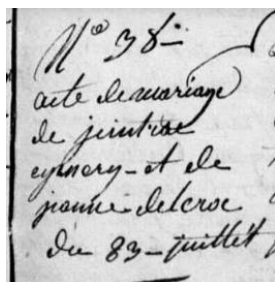 N° 38
acte de mariage
de
eymery - et de
jeanne delcroc
du 23 - juillet